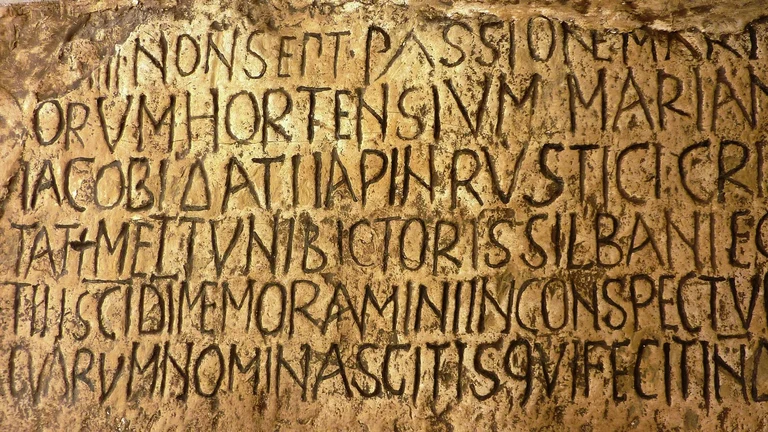 IIII NONSEPT·PASSIONEMART
ORVMHORTENSIVM MARIAN
IACOBIDATIIAPINRVSTICICRI
TATI+METTVNIBICTORISSILBANIEG
TIISCIDIMEMORAMINIINCONSPECTV
QVARVMNOMINASCITISQVIFECITIN